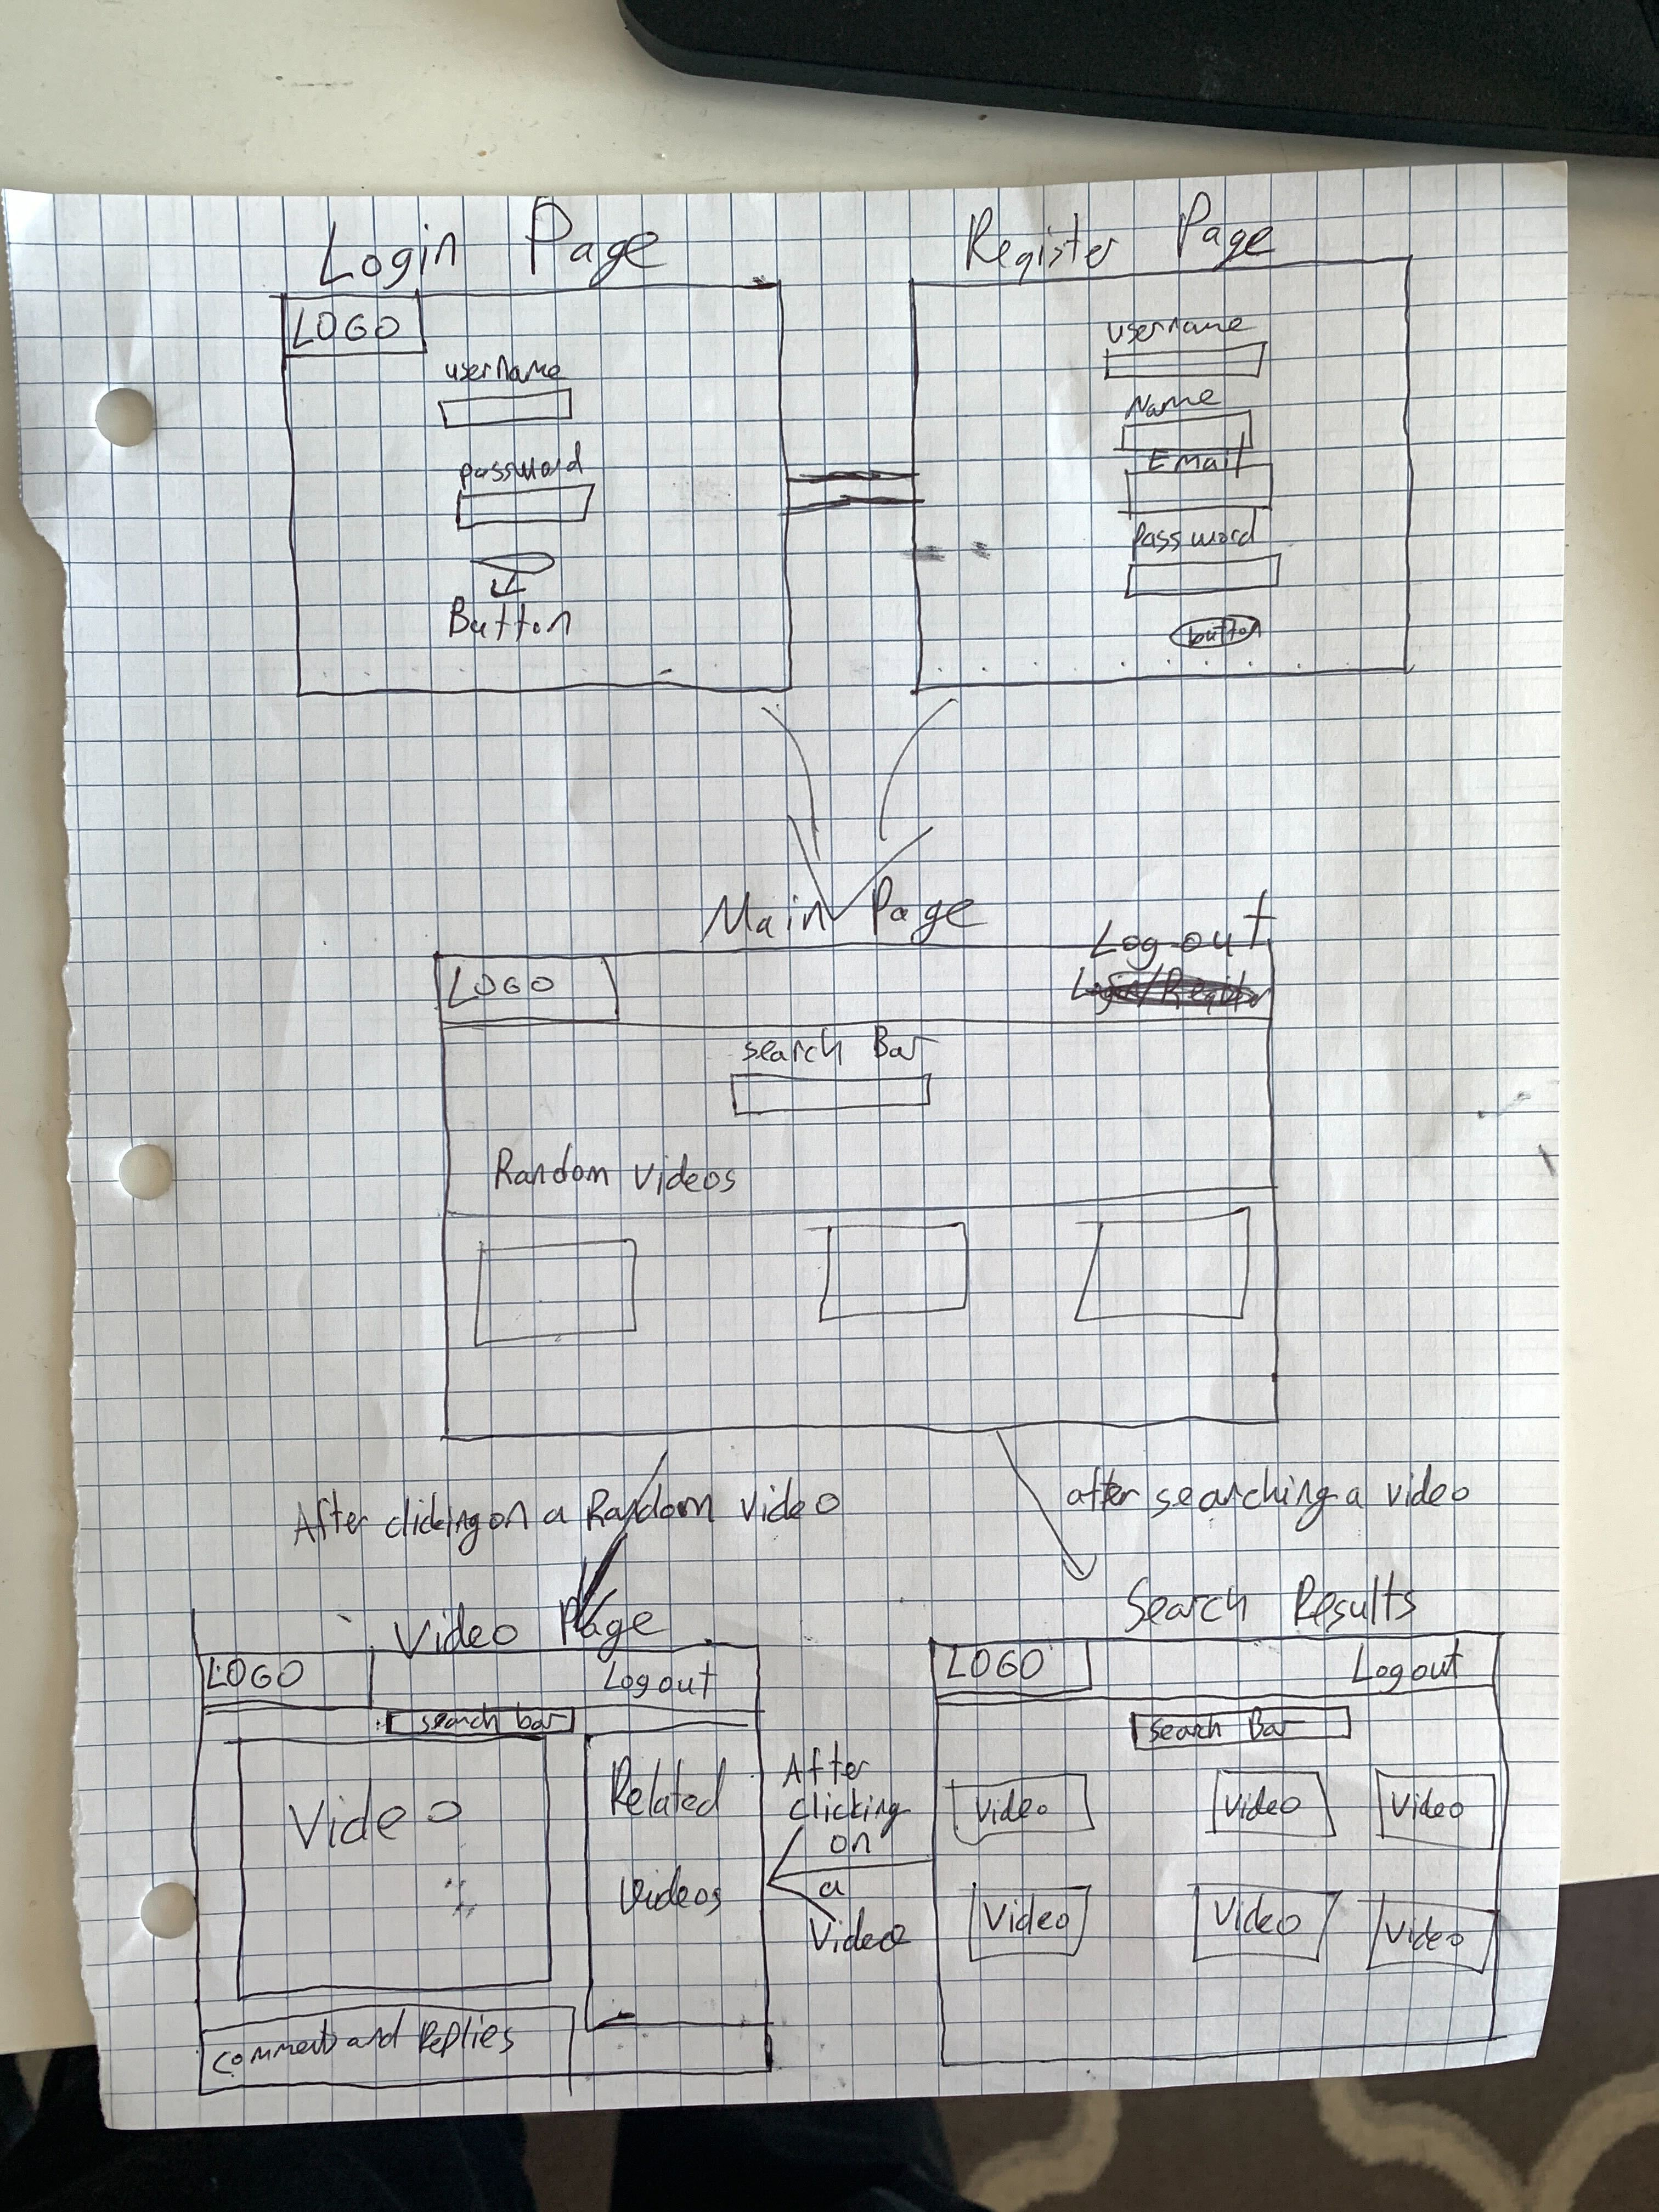 Login Page
LOGO
username
password
Button
Register Page
username
Name
Email
Password
button
Main Page
LOGO
Logout
Login/Register
search Bar
Random videos
After clicking on a Random video
after searching a video
Video Page
LOGO
Logout
search bar
Video
Related
Videos
comment and Replies
After
clicking
on
a
Video
Search Results
LOGO
Logout
Search Bar
Video
Video
Video
Video
Video
Video